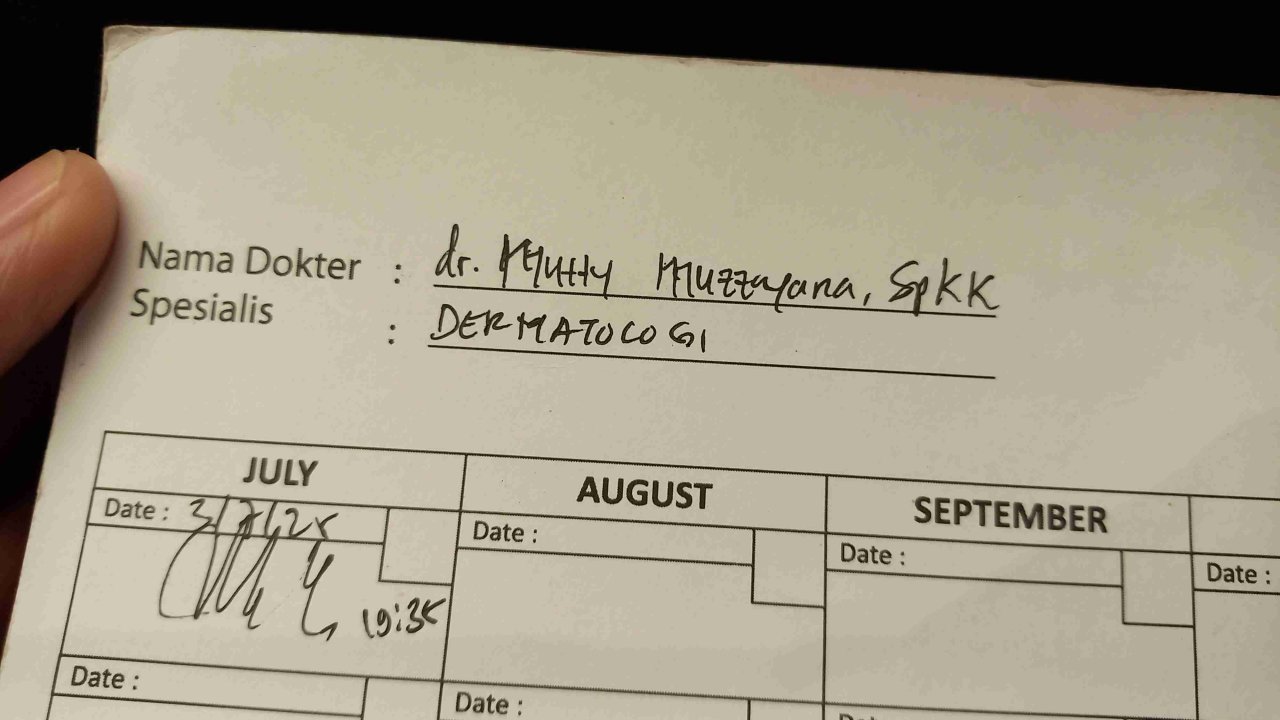 Nama Dokter : dr. Mutty Muzzayana, SpKK
Spesialis : DERMATOLOGI
JULY AUGUST SEPTEMBER
Date : 3/7/25 Date : Date : Date :
19:35
Date : Date :